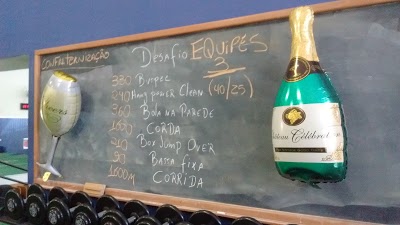 CONFRATERNIZAÇÃO
Desafio EQUIPES
3
(40/25)
330 Burpee
240 Hang power Clean
360 Bola na Parede
1600 CORDA
40 Box Jump Over
90 Barra fixa
1600M CORRIDA
Célébration